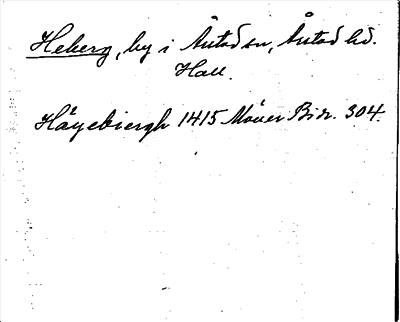 Heberg, by i Årstad sn, Årstad hd.
Hall.
Håyebiergh 1415 Måner Bidr. 304.